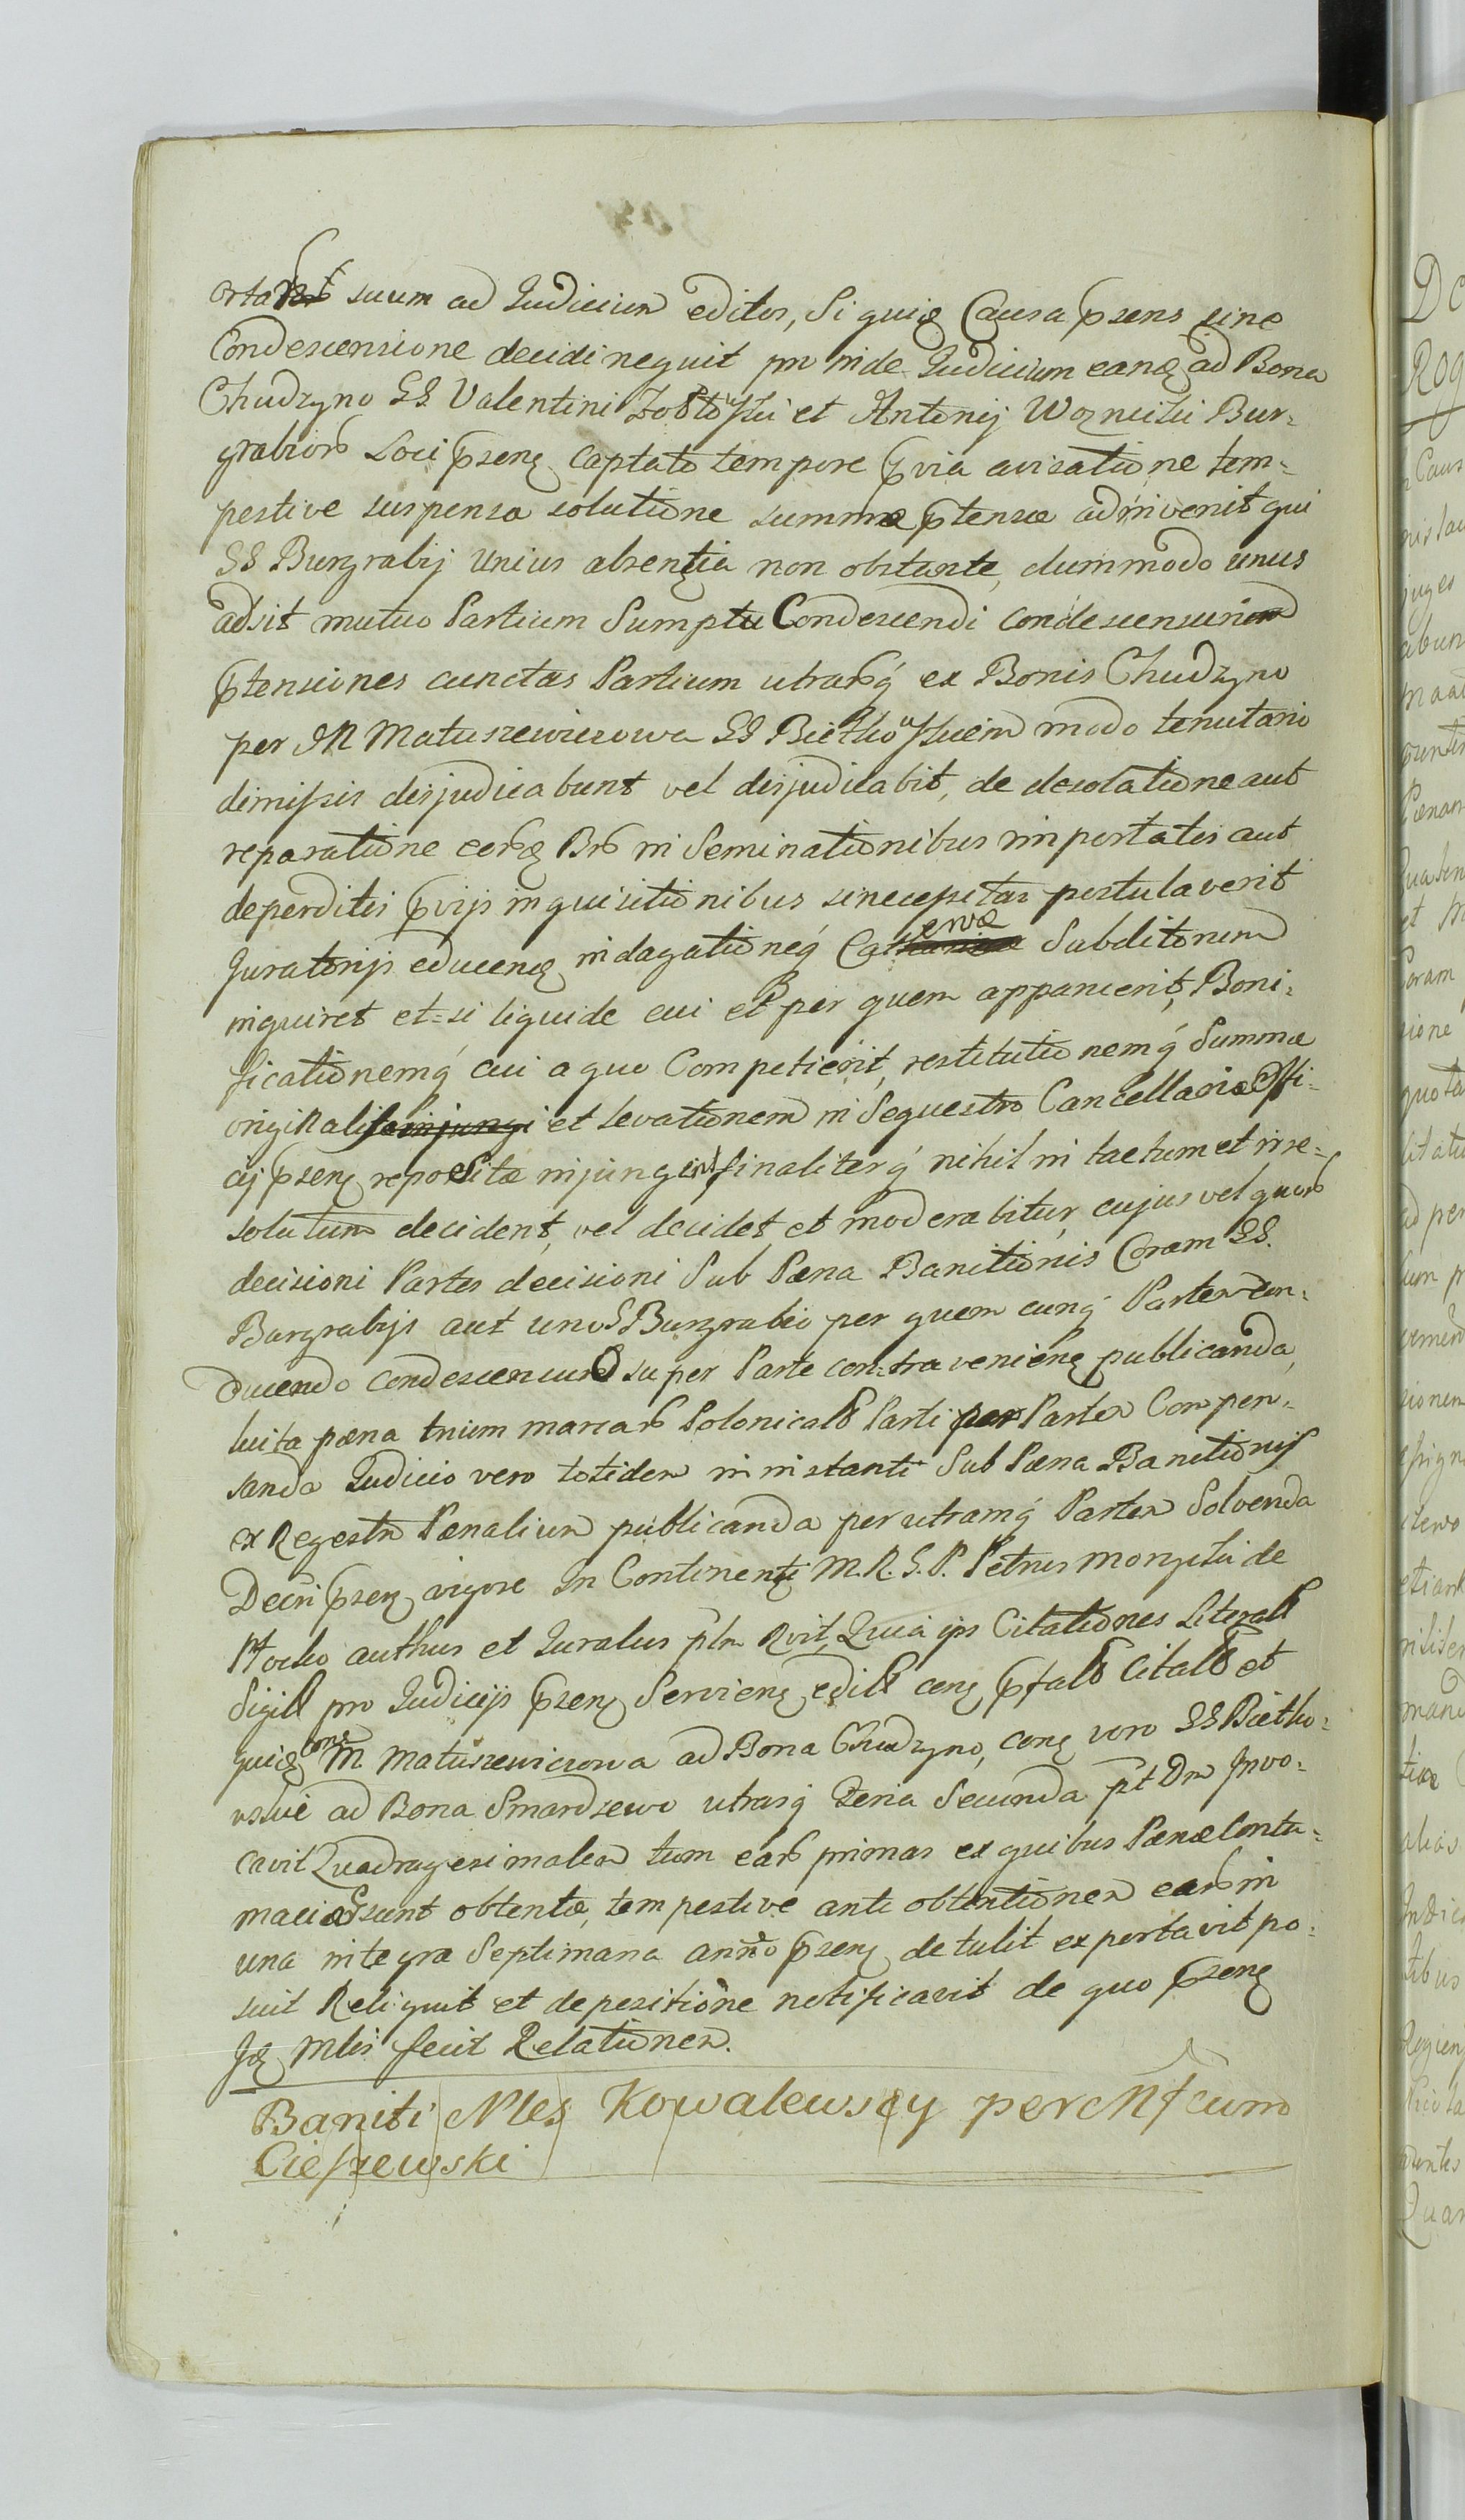 suum ad Judicium editos, Si quid Causa pzens sine
Condescensione decidi nequit pro inde Judicium eand ad Bona
Chudzyno GG Valentini et Antonij Woznicki Bur-
grabior Loci pzens captato tempore pvia avisatione tem-
pestive suspensa solutione summæ ptensæ adinvenit qui
GG Burgrabij unius absentia non obstante, dummodo unus
adsit mutuo Partium Sumptu Condescendi condescensuri
ptensiones cunctas Partium utrarq ex Bonis Chudzyno
per M Matuszewiczowa GG modo tenutario
dimissis disjudicabunt vel disjudicabit, de desolatione aut
reparatione eord Br in Seminationibus importatis aut
deperditis pvijs inquisitionibus postulaverit
Juratorijs educend indagationeq Catervæ Subditorum
inquiret et si liquide cui et per quem apparuerit, Boni-
ficationemq cui a quo Competierit, restitutionemq Summæ
originalis et levationem in Sequestro Cancellariæ Offi-
cij pzens repositæ injunget, finaliterq nihil in tactum et irre-
solutum decident, vel decidet, et moderabitur, cujus vel quor
decisioni Partes decisioni Sub Pæna Banitionis Coram GG.
Burgrabijs aut uno G Burgrabio per quem cunq Partem con-
ducendo condescensur super Parte contraveniend publicanda,
luita pæna trium marcar Polonical Parti per Partem Compen-
sanda Judicio vero totidem in instanti Sub Pæna Banitionis
ex Regestro Pænalium publicanda per utramq Partem Solvenda
Decri pzens vigore In Continenti M. R. G. P. Petrus Morzycki de
Płocko authus et Juratus ptr Rvit, Quia ips Citationes Literall
Sigill pro Judicijs pzens Serviend edill cend pfald Citald et
quid M. Matuszewiczowa ad Bona Chudzyno, cond vero GG Bietko-
wski ad Bona Smardzewo utrasq Feria Secunda pt Dm Invo-
cavit Quadragesimalem tum ear primas ex quibus Pænæ Contu-
maciæ sunt obtentæ, tempestive ante obtentionem ear in
una integra Septimana anno pzens detulit exportavit po-
suit Reliquit et depositione notificavit de quo pzens
Jd Mlis fecit Relationem.
Baniti Nles Kowalewscy per Mfcum
Cieszewski